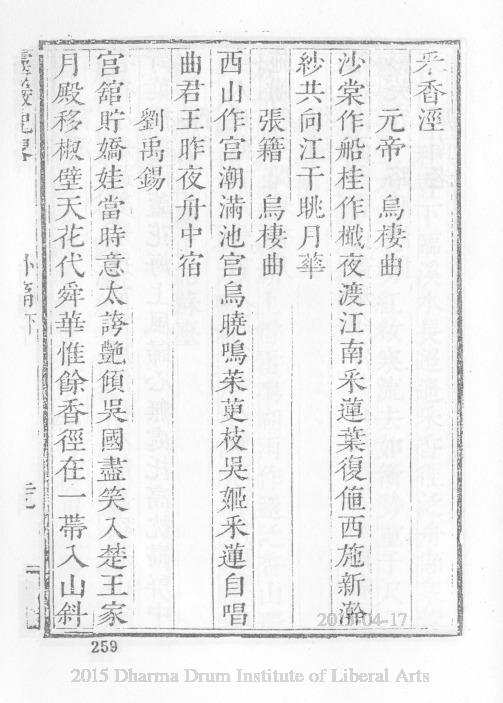 采香涇
元帝　烏棲曲
沙棠作船桂作檝夜渡江南采蓮葉復値西施新澣
紗共向江干眺月華
張籍　烏棲曲
西山作宮潮滿池宮烏曉鳴茱萸枝吳姬采蓮自唱
曲君王昨夜舟中宿
劉禹錫
宮舘貯嬌娃當時意太誇艷傾吳國盡笑入楚王家
月殿移椒壁天花代舜華惟餘香徑在一帶入山斜
靈巖紀畧　外篇下
259
2015 Dharma Drum Institute of Liberal Arts